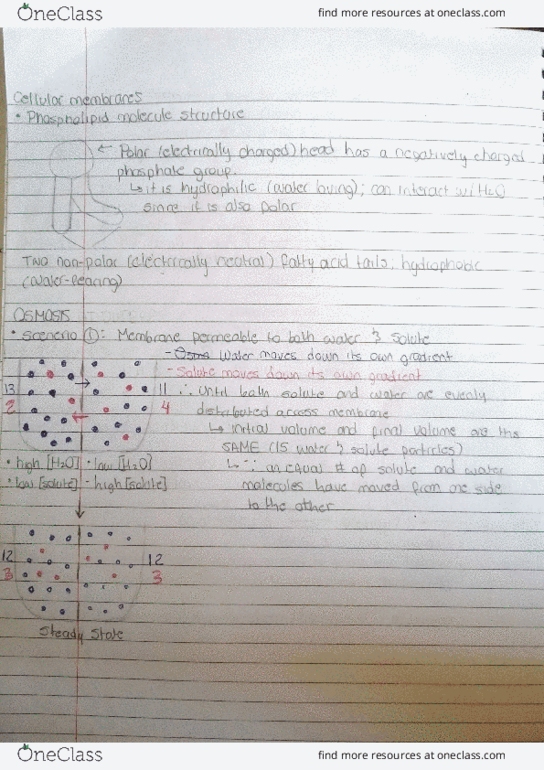 OneClass
find more resources at oneclass.com
Cellular membranes
• Phospholipid molecule structure
← Polar (electrically charged) head has a negatively charged
phosphate group.
↳ it is hydrophilic (water loving); can interact w/ H2O
since it is also polar
Two non-polar (electrically neutral) fatty acid tails; hydrophobic
(water-fearing)
OSMOSIS
• Scenerio ①: Membrane permeable to both water & solute
- Water moves down its own gradient
- Solute moves down its own gradient
∴ until both solute and water are evenly
distributed across membrane
↳ initial volume and final volume are the
SAME (15 water & solute particles)
↳ ∵ an equal # of solute and water
molecules have moved from one side
to the other
13 → 11
2 ← 4
• high [H2O] • low [H2O]
• low [solute] • high [solute]
12 12
3 3
Steady State
OneClass
find more resources at oneclass.com